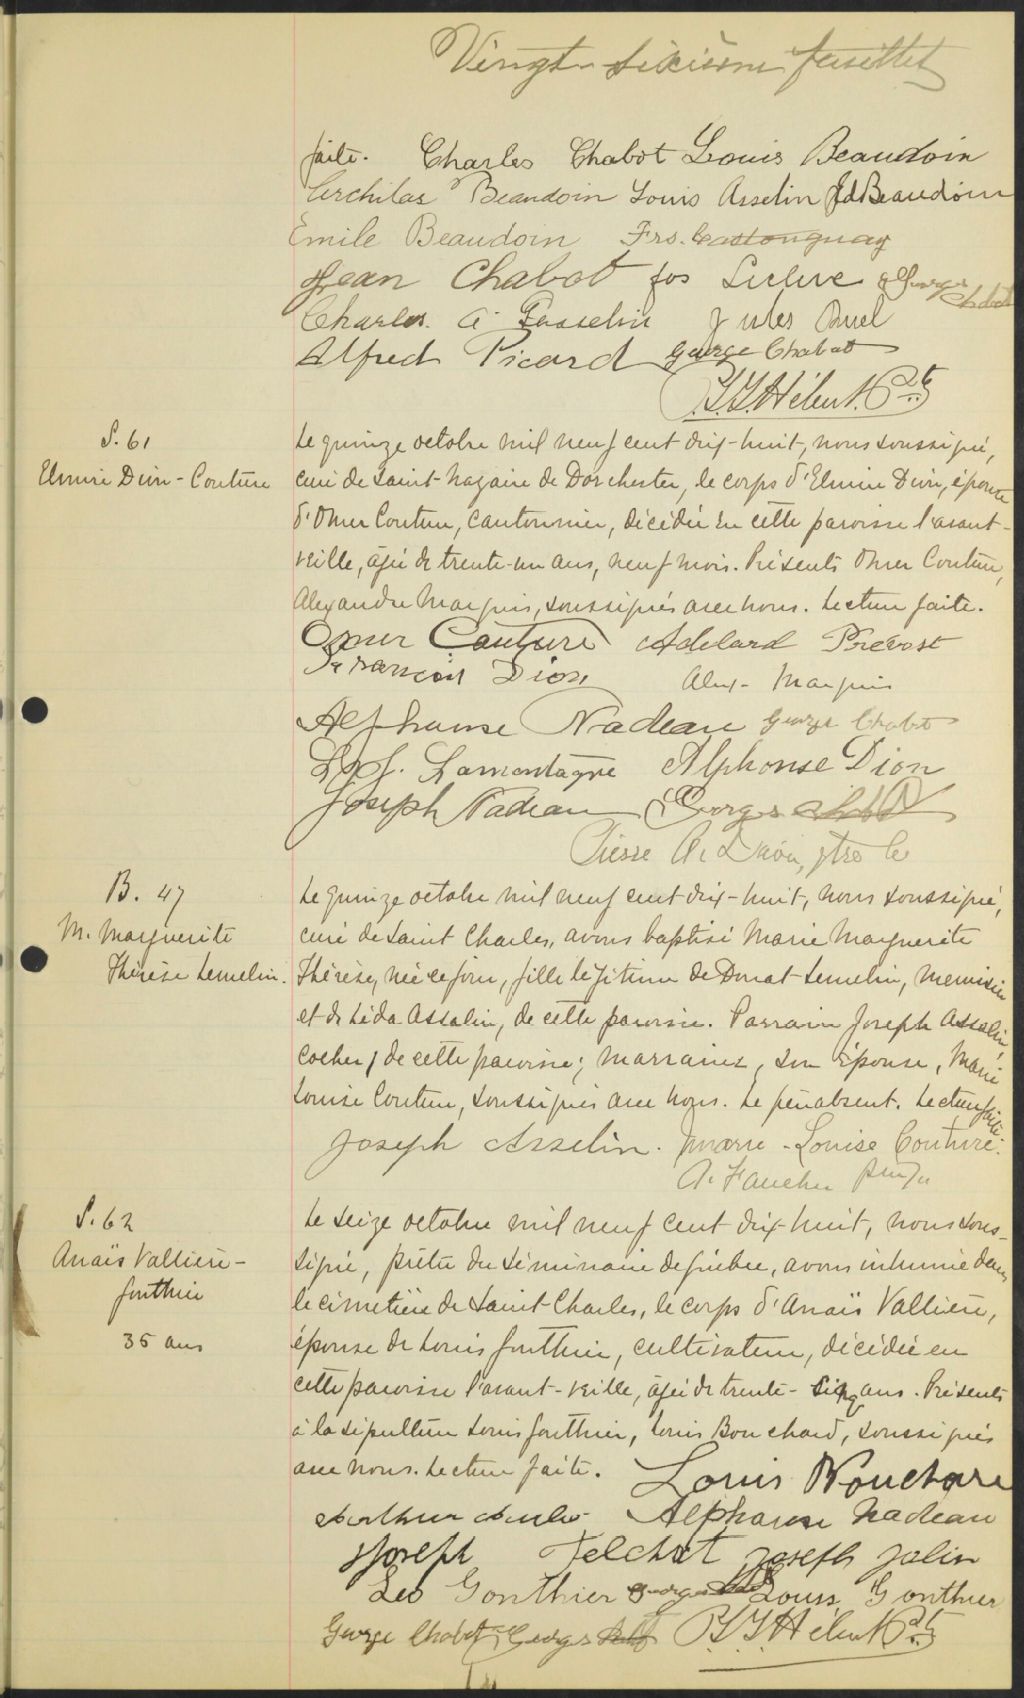 Vingt-sixième feuillet
faite. Charles Chabot Louis Beaudoin
Archilas Beaudoin Louis Asselin Jd Beaudoin
Emile Beaudoin Frs. Castonguay
Jean Chabot Jos Leclerc George Chabot
Charles A. Gosselin Jules Ruel
Alfred Picard George Chabot
Hébert, Ptre
S. 61
Elmire Dion-Couture
Le quinze octobre mil neuf cent dix-huit, nous soussigné,
curé de Saint-Nazaire de Dorchester, le corps d'Elmire Dion, épouse
d'Omer Couture, cantonnier, décédée en cette paroisse l'avant-
veille, âgée de trente-un ans, neuf mois. Présents Omer Couture,
Alexandre Marquis, soussignés avec nous. Lecture faite.
Omer Couture Adelard Prevost
François Dion Alex. Marquis
Alphonse Nadeau George Chabot
Lamontagne Alphonse Dion
Joseph Nadeau Georges
Pierre A. ptre
B. 47
M. Marguerite
Thérèse Lemelin.
Le quinze octobre mil neuf cent dix-huit, nous soussigné,
curé de Saint Charles, avons baptisé Marie Marguerite
Thérèse, née ce jour, fille légitime de Donat Lemelin, menuisier
et de Léda Asselin, de cette paroisse. Parrain Joseph Asselin,
cocher, de cette paroisse; marraine, son épouse, Marie
Louise Couture, soussignés avec nous. Le père absent. Lecture faite.
Joseph Asselin. Marie-Louise Couture.
A. Faucher
S. 62
Anaïs Vallière-
Gonthier
35 ans
Le seize octobre mil neuf cent dix-huit, nous sous-
signé, prêtre du Séminaire de Québec, avons inhumé dans
le cimetière de Saint-Charles, le corps d'Anaïs Vallière,
épouse de Louis Gonthier, cultivateur, décédée en
cette paroisse l'avant-veille, âgée de trente-cinq ans. Présents
à la sépulture Louis Gonthier, Louis Bouchard, soussignés
avec nous. Lecture faite. Louis Bouchard
Arthur Alphonse Nadeau
Joseph Pelchat Joseph Jolin
Leo Gonthier Georges Louis Gonthier
George Chabot Georges Hébert Ptre